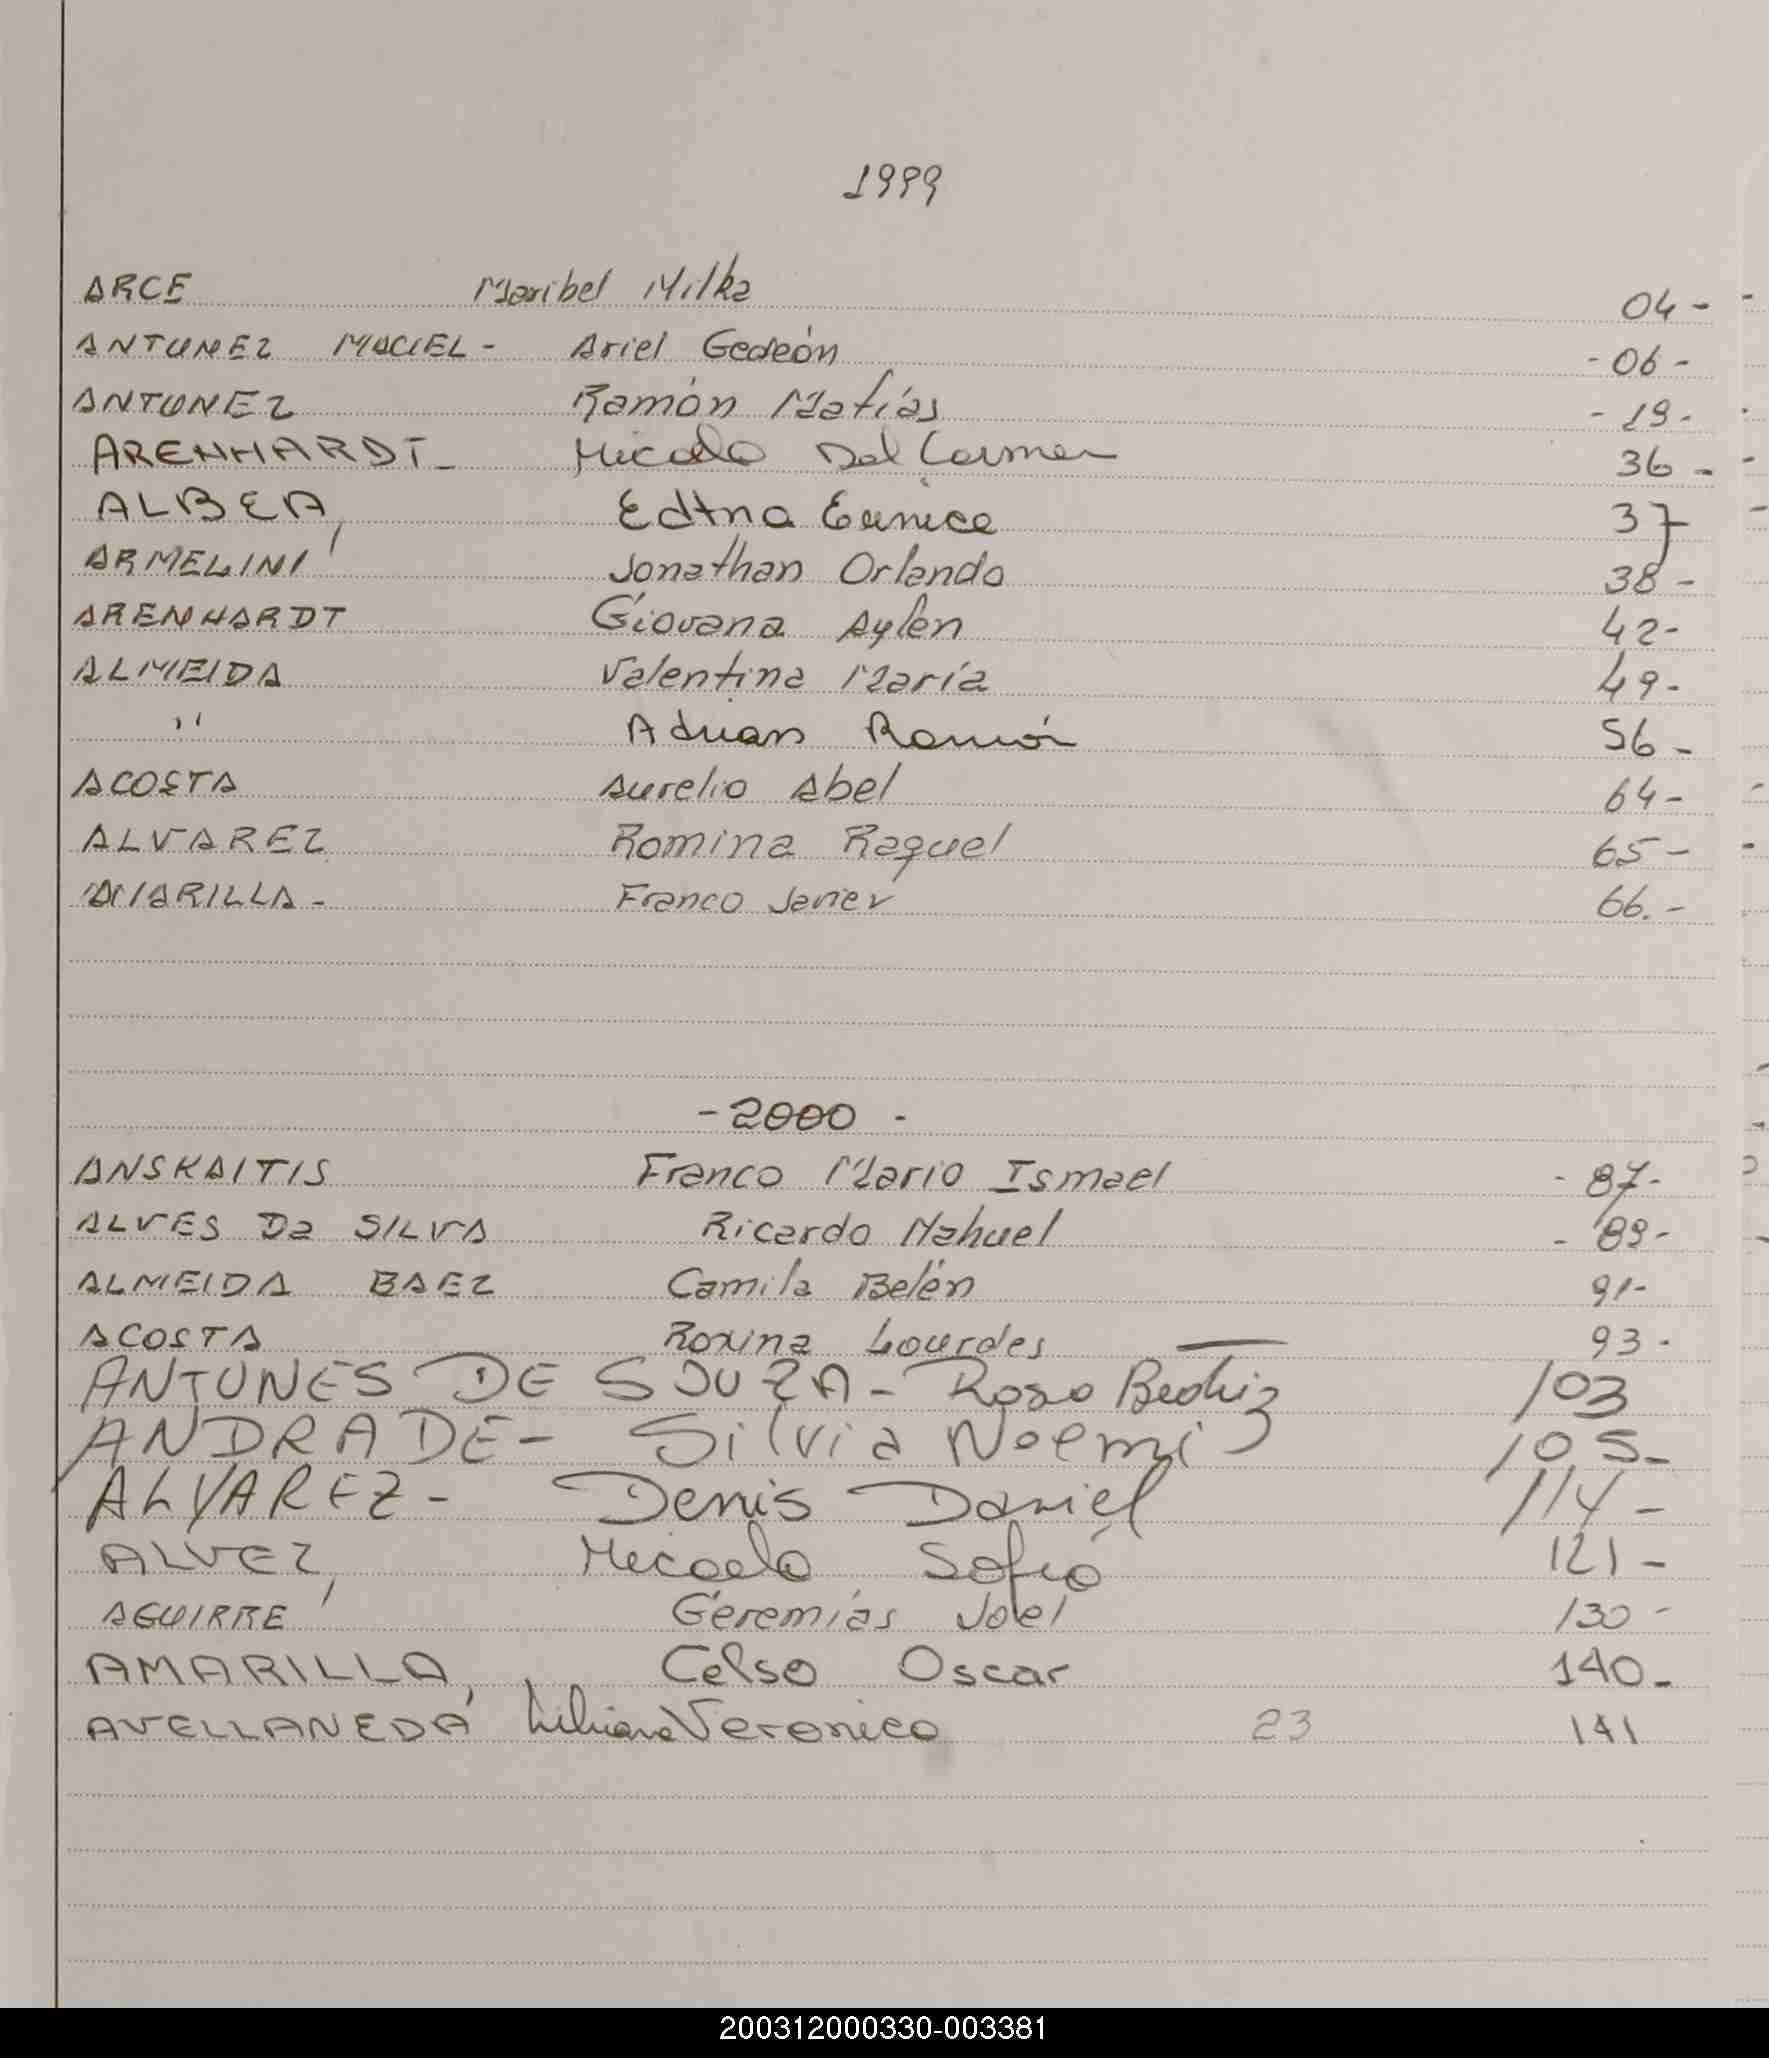 1999
ARCE Maribel Milka 04-
ANTUNEZ MACIEL- Ariel Gedeón -06-
ANTUNEZ Ramón Matías -19-
ARENHARDT- Micaela Del Carmen 36-
ALBEA, Edtna Eunice 37
ARMELINI Jonathan Orlando 38-
ARENHARDT Giovana Aylen 42-
ALMEIDA Valentina María 49-
" Adrian Ramón 56-
ACOSTA Aurelio Abel 64-
ALVAREZ Romina Raquel 65-
AMARILLA- Franco Javier 66.-
-2000-
ANSKAITIS Franco Mario Ismael -87-
ALVES Da SILVA Ricardo Nahuel -89-
ALMEIDA BAEZ Camila Belén 91-
ACOSTA Roxina Lourdes 93-
ANTUNES DE SOUZA- Rosa Beatriz 103
ANDRADE- Silvia Noemi 105-
ALVAREZ- Denis Daniel 114-
ALVEZ, Micaela Sofía 121-
AGUIRRE Geremías Joel 130-
AMARILLA, Celso Oscar 140-
AVELLANEDA Liliana Veronica 23 141
200312000330-003381